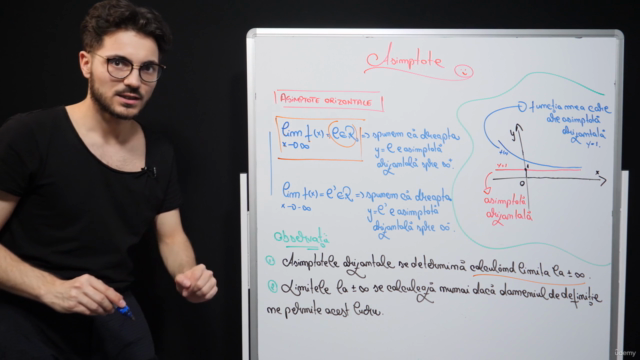 Asimptote
ASIMPTOTE ORIZONTALE
lim f(x) = l ∈ R => spunem că dreapta
x→∞ y=l e asimptotă
orizontală spre ∞.
lim f(x) = l' ∈ R => spunem că dreapta
x→-∞ y=l' e asimptotă
orizontală spre ∞.
funcția mea care
are asimptotă
orizontală
y=1.
y
x
0
y=1
asimptotă
orizontală
Observații
① Asimptotele orizontale se determină calculând limita la ±∞.
② Limitele la ±∞ se calculează numai dacă domeniul de definiție
ne permite acest lucru.
Udemy